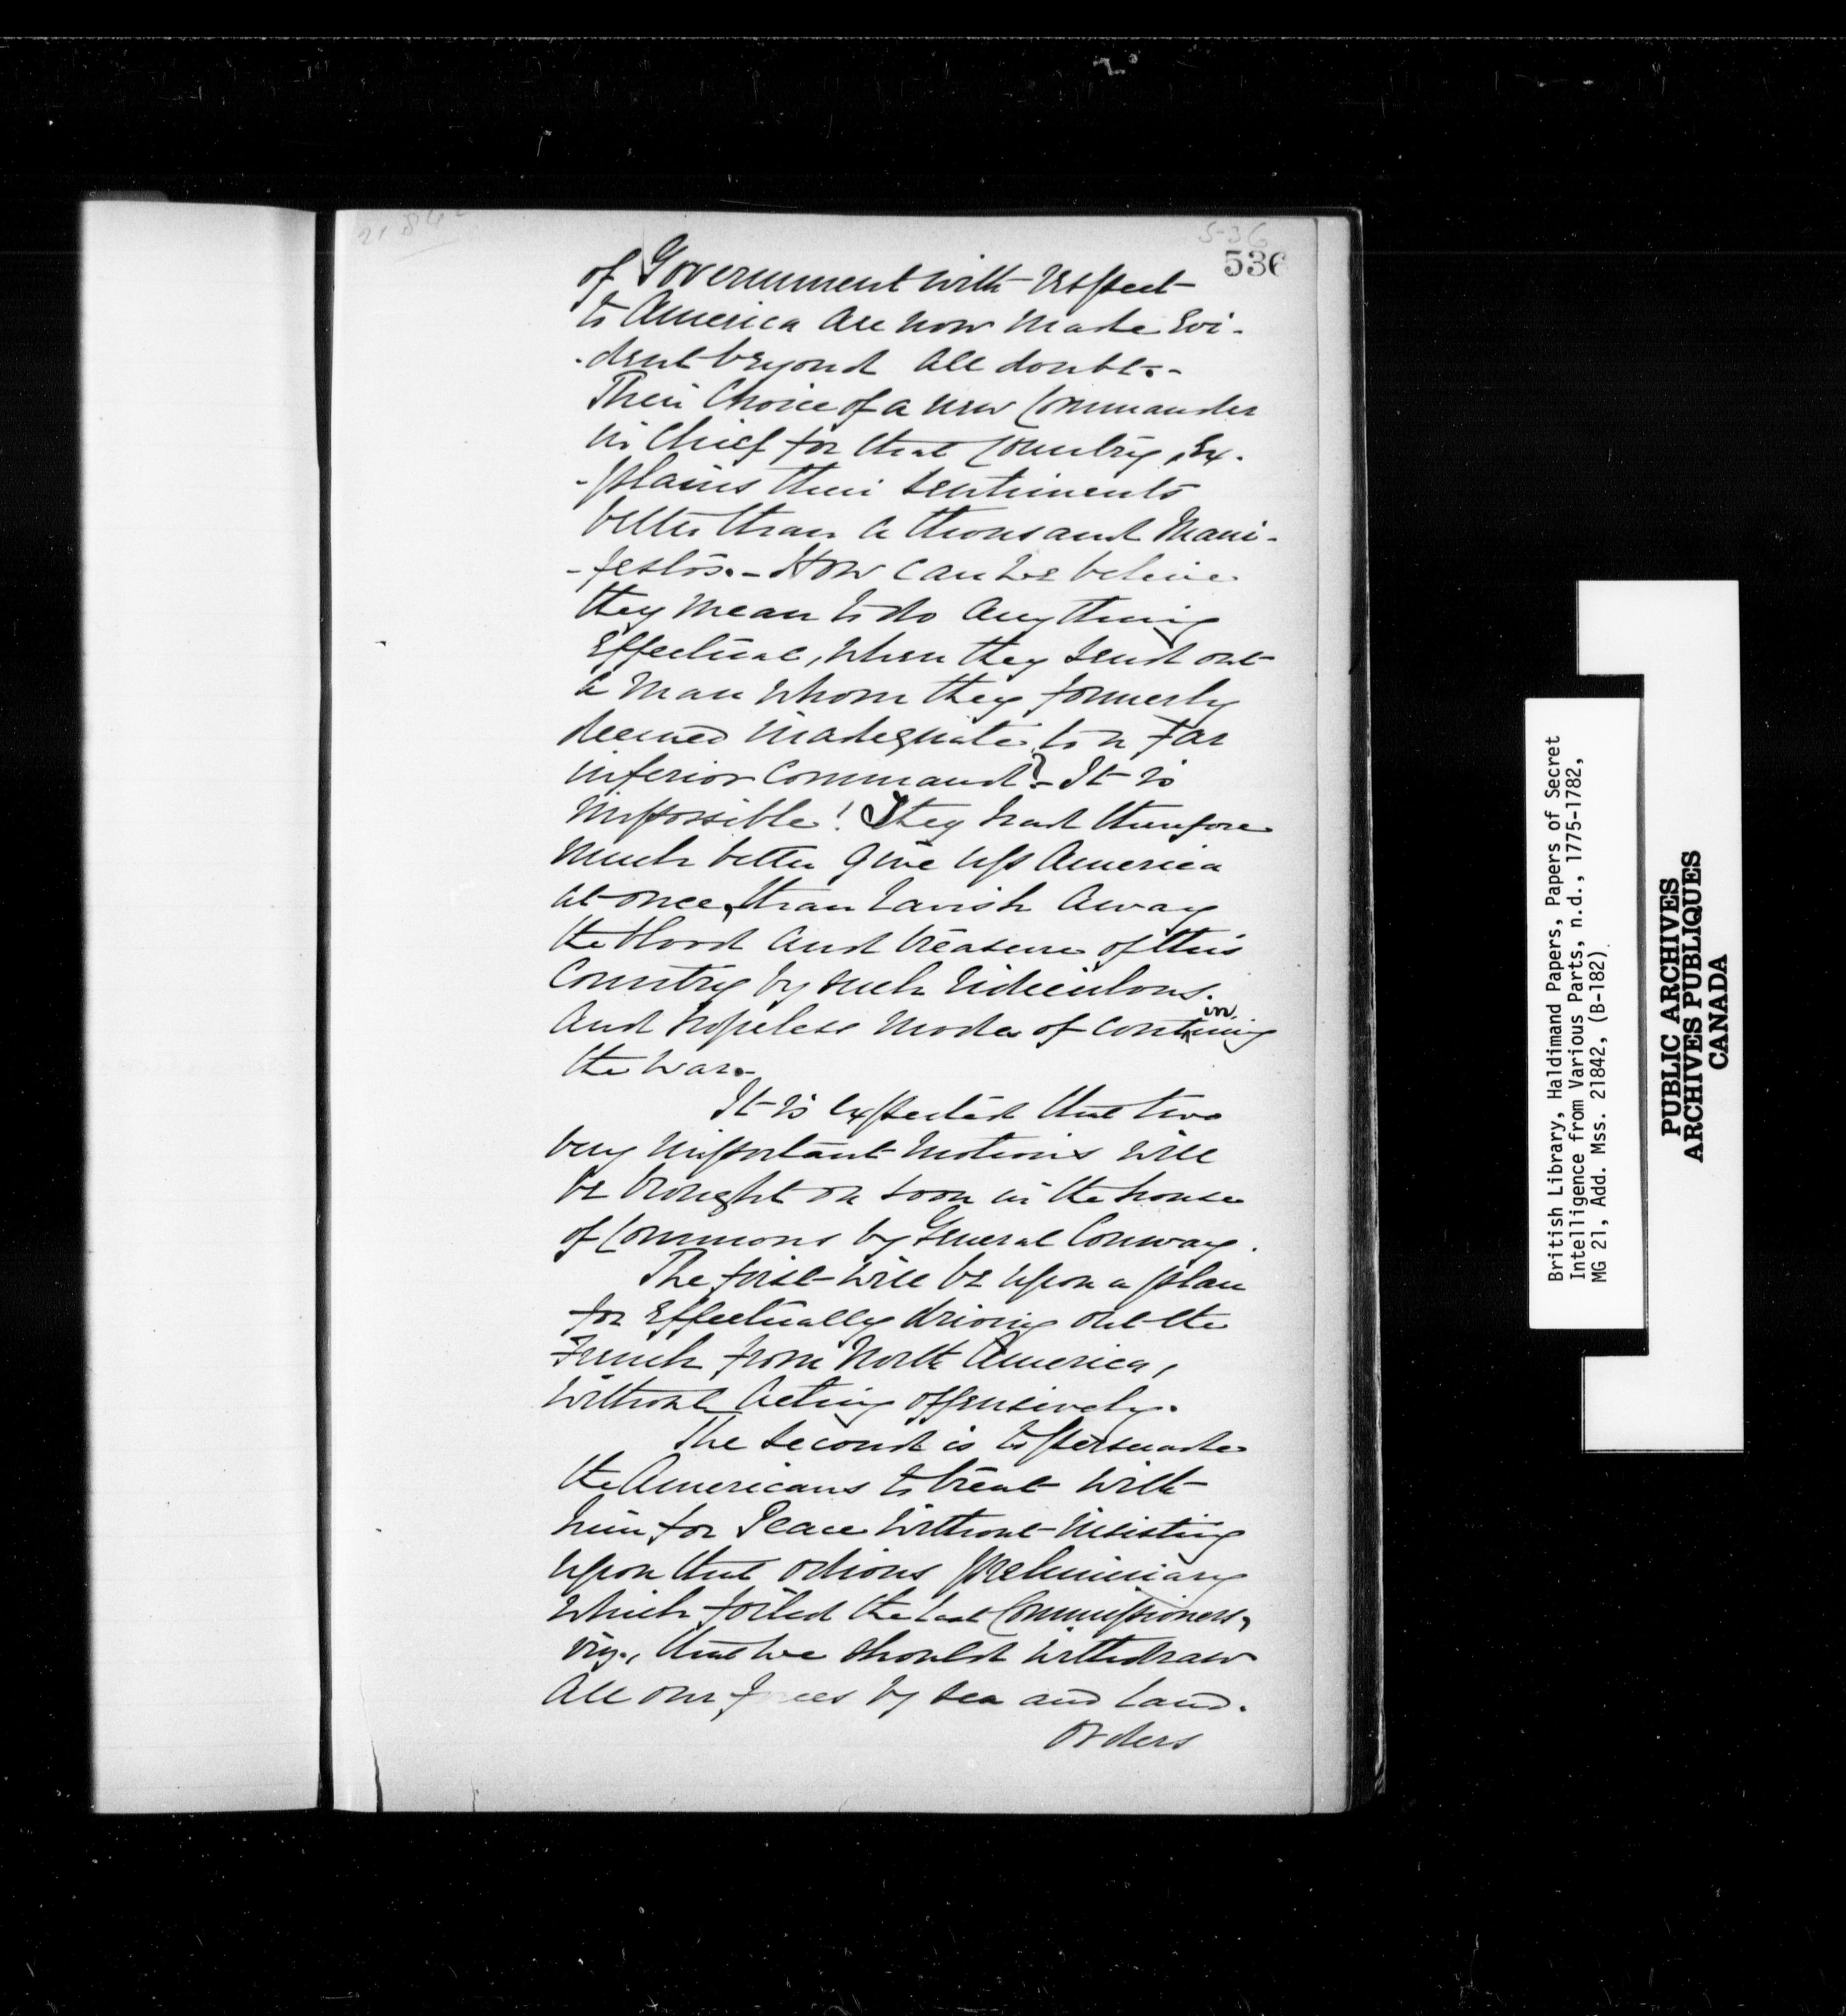 21842
5-36
536
of Government with respect
to America are now made Evi-
-dent beyond all doubt.-
Their Choice of a new Commander
in Chief for that Country, Ex-
-plains their sentiments
better than a thousand Mani-
-festos.- How can we believe
they mean to do anything
Effectual, when they send out
a man whom they formerly
deemed inadequate to a far
inferior Command?- It is
impossible! They had therefore
much better give up America
at once, than lavish away
the blood and treasure of this
Country by such ridiculous.
and hopeless modes of cont^in^uing
the war.-
It is expected that two
very important motions will
be brought on soon in the house
of Commons by General Conway.
The first will be upon a plan
for Effectually driving out the
French from North America,
without acting offensively.
The second is to persuade
the Americans to treat with
him for Peace without insisting
upon that odious preliminary
which foiled the last Commissioners,
viz., that we should withdraw
all our forces by sea and land.
Orders
British Library, Haldimand Papers, Papers of Secret
Intelligence from Various Parts, n.d., 1775-1782,
MG 21, Add. Mss. 21842, (B-182)
PUBLIC ARCHIVES
ARCHIVES PUBLIQUES
CANADA